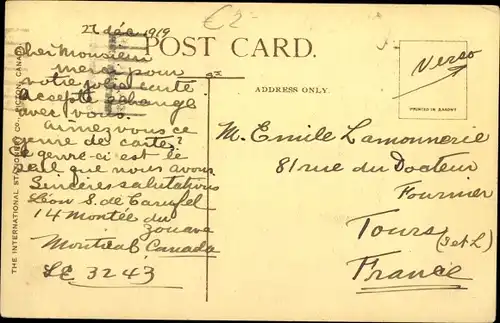 €2-
27 déc 1919
POST CARD.
Cher Monsieur
merci pour
votre jolie carte
accepte échange
avec vous.
Aimez vous ce
genre de cartes?
Ce genre-ci est le
seul que nous avons
Sincères salutations
Léon S. de
14 Montée du
Zouave
Montreal, Canada
LE 3243
ADDRESS ONLY.
Verso
PRINTED IN SAXONY
M. Emile Lamonnerie
81 rue du Docteur
Fournier
Tours
(I et L)
France
THE INTERNATIONAL STATIONERY CO., PICTON, CANADA